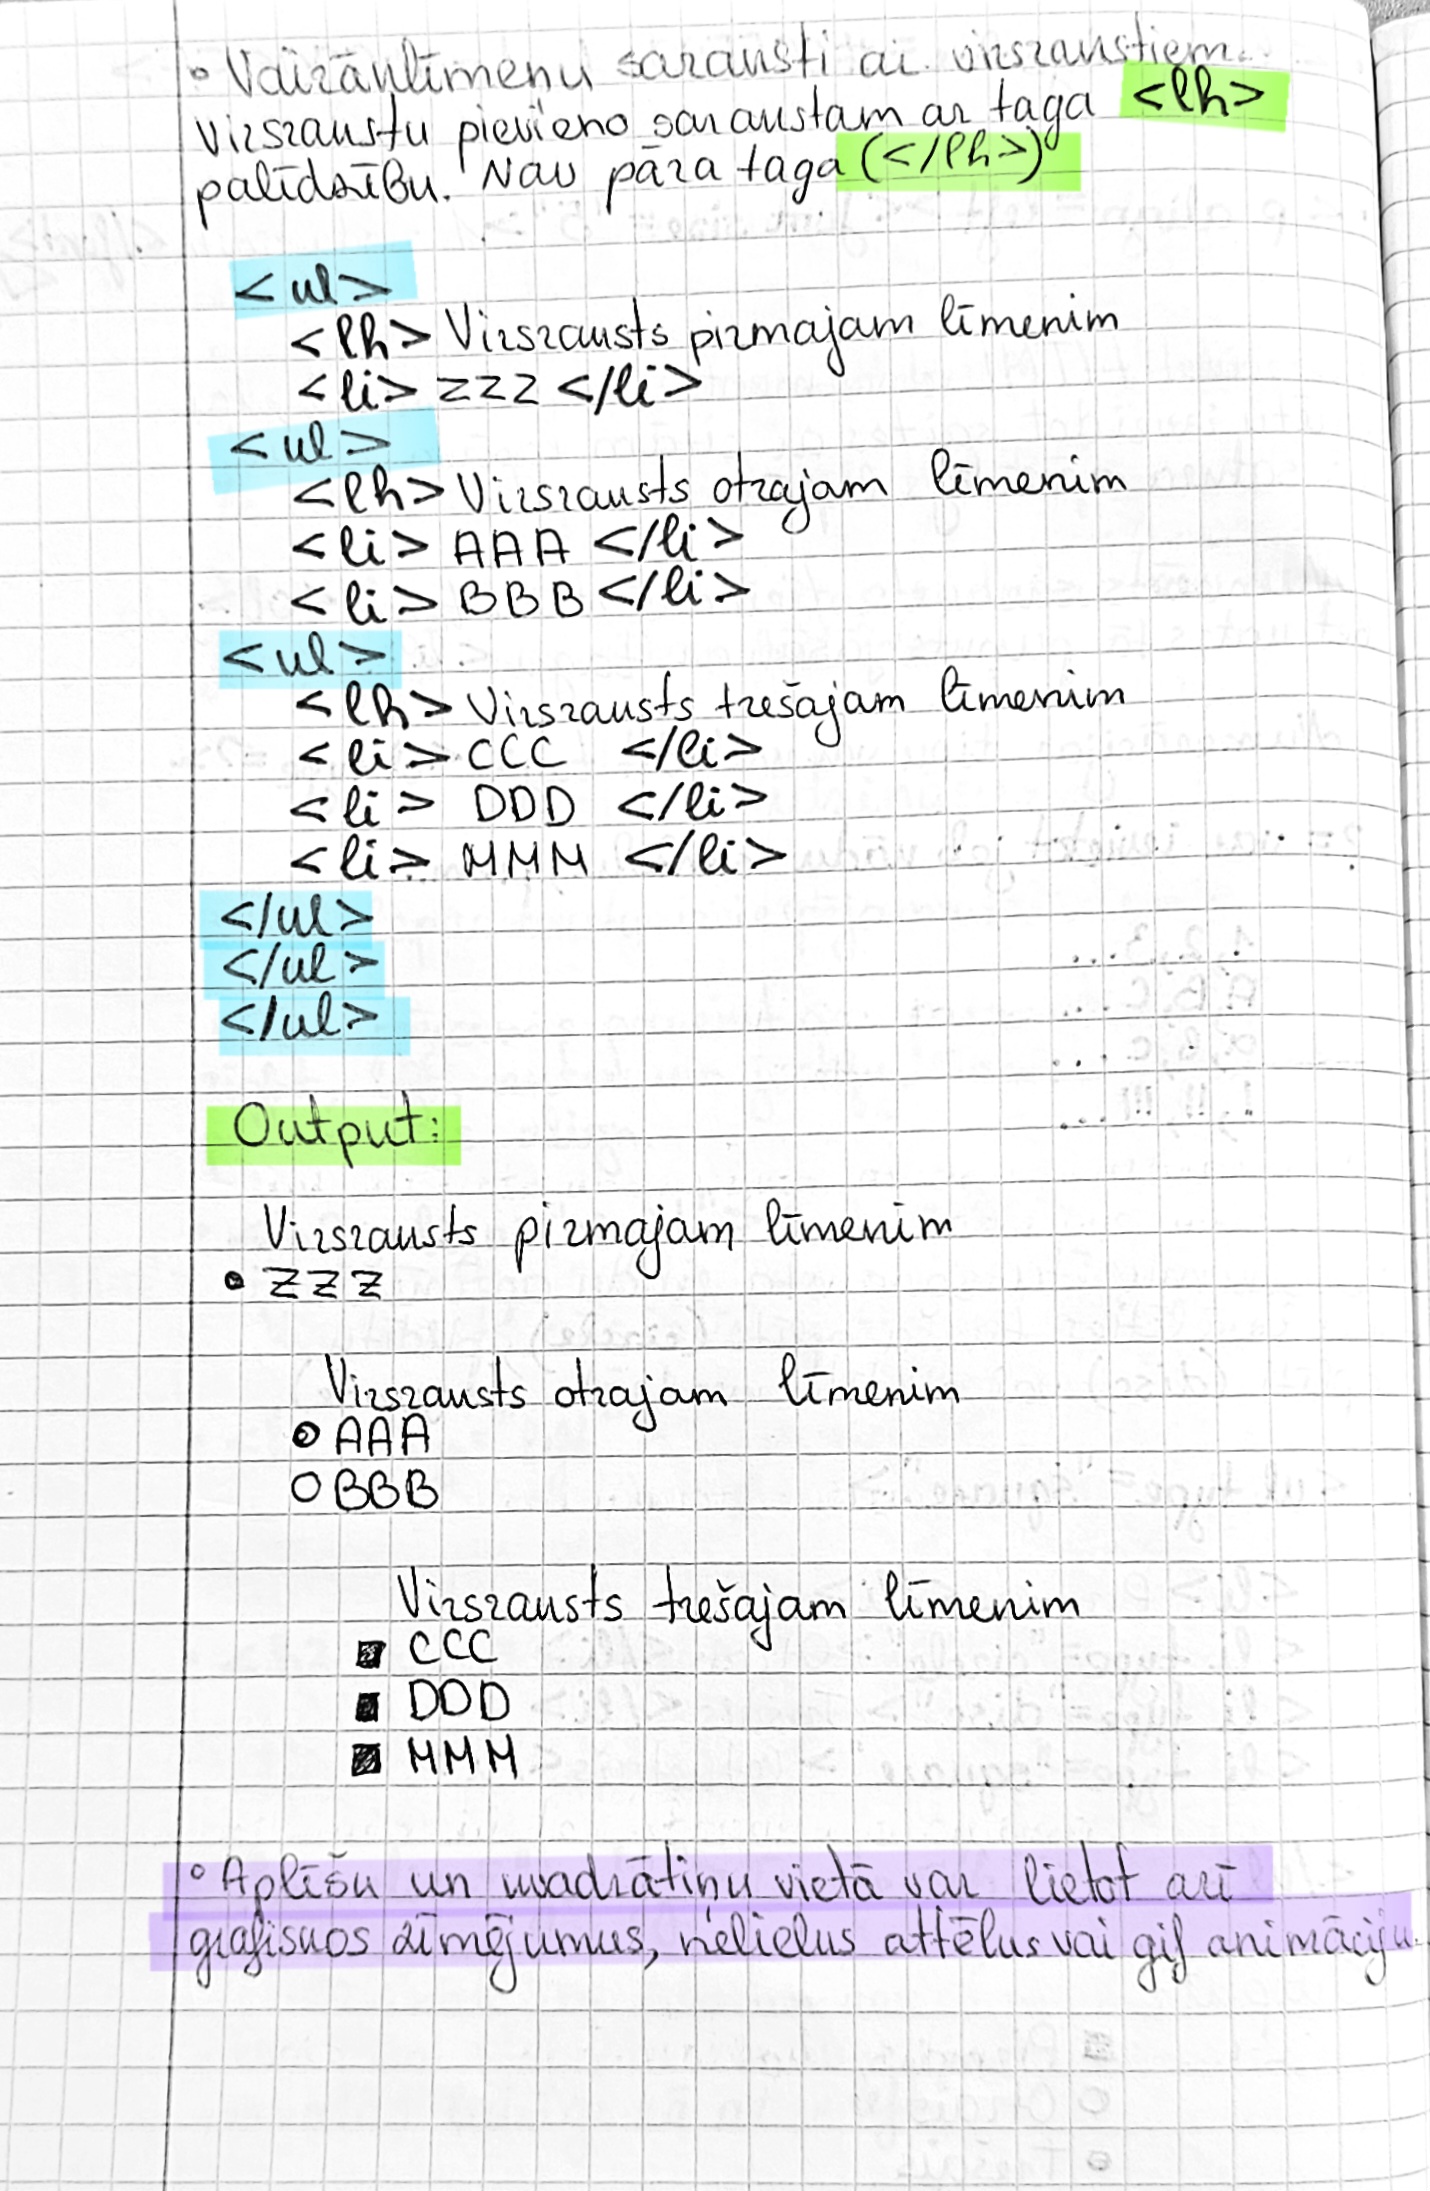 • Vairāklīmeņu saraksti ar virsrakstiem.
Virsrakstu pievieno sarakstam ar taga <lh>
palīdzību. Nav pāra taga (</lh>)
<ul>
<lh> Virsraksts pirmajam līmenim
<li> ZZZ </li>
<ul>
<lh> Virsraksts otrajam līmenim
<li> AAA </li>
<li> BBB </li>
<ul>
<lh> Virsraksts trešajam līmenim
<li> CCC </li>
<li> DDD </li>
<li> MMM </li>
</ul>
</ul>
</ul>
Output:
Virsraksts pirmajam līmenim
• ZZZ
Virsraksts otrajam līmenim
○ AAA
○ BBB
Virsraksts trešajam līmenim
■ CCC
■ DDD
■ MMM
• Aplīšu un kvadrātiņu vietā var lietot arī
grafiskos zīmējumus, nelielus attēlus vai gif animāciju.